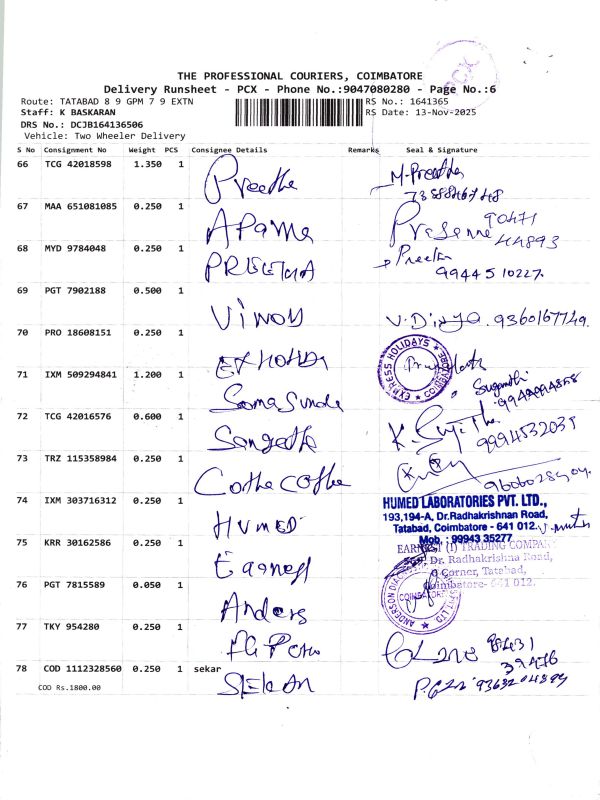 PCX
THE PROFESSIONAL COURIERS, COIMBATORE
Delivery Runsheet - PCX - Phone No.:9047080280 - Page No.:6
Route: TATABAD 8 9 GPM 7 9 EXTN RS No.: 1641365
Staff: K BASKARAN RS Date: 13-Nov-2025
DRS No.: DCJB164136506
Vehicle: Two Wheeler Delivery
S No Consignment No Weight PCS Consignee Details Remarks Seal & Signature
66 TCG 42018598 1.350 1 Preethe M. Preetha
67 MAA 651081085 0.250 1 APama Prasanna 90471
44893
68 MYD 9784048 0.250 1 PREETHA Preetha
99445 10227
69 PGT 7902188 0.500 1 Vinod V. Divya . 9360167749
70 PRO 18608151 0.250 1 EX HOLIDAY EXPRESS HOLIDAYS COIMBATORE
71 IXM 509294841 1.200 1 Soma Sunda Suganthi
72 TCG 42016576 0.600 1 Sangeetha K. Sujitha
9994532035
73 TRZ 115358984 0.250 1 Cothe coffee
74 IXM 303716312 0.250 1 HUMED HUMED LABORATORIES PVT. LTD.,
193,194-A, Dr.Radhakrishnan Road,
Tatabad, Coimbatore - 641 012.
Mob. : 99943 35277
75 KRR 30162586 0.250 1 Earnest EARNEST (I) TRADING COMPANY
Dr. Radhakrishna Road,
Corner, Tatabad,
Coimbatore- 641 012.
76 PGT 7815589 0.050 1 Anders ANDERSON COIMBATORE PVT LTD
77 TKY 954280 0.250 1
78 COD 1112328560 0.250 1 sekar
COD Rs.1800.00 SEKAR